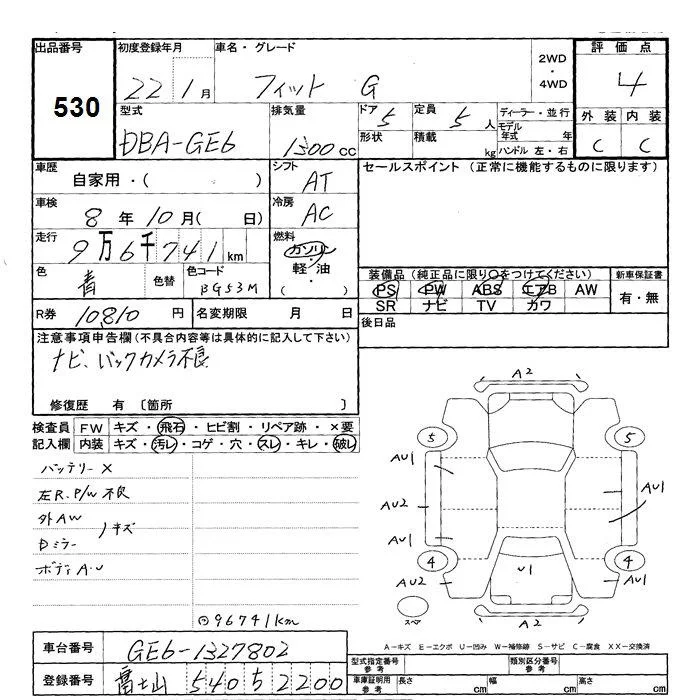 出品番号 初度登録年月 車名・グレード 2WD・4WD 評価点
530 22 1月 フィット G 4
型式 排気量 ドア 5 定員 5人 ディーラー・並行 外装 内装
DBA-GE6 1300cc 形状 積載 kg モデル年式 年 C C
ハンドル 左・右
車歴 自家用・( ) シフト AT セールスポイント (正常に機能するものに限ります)
車検 8年10月( 日) 冷房 AC
走行 9万6千741km 燃料 ガソリン・軽油・( )
色 青 色替 色コード BG53M 装備品 (純正品に限り○をつけてください) 新車保証書
PS PW ABS エアB AW 有・無
SR ナビ TV カワ
R券 10810円 名変期限 月 日 後日品
注意事項申告欄(不具合内容等は具体的に記入して下さい)
ナビ、バックカメラ不良
修復歴 有 〔箇所 〕
検査員 FW キズ・飛石・ヒビ割・リペア跡・×要
記入欄 内装 キズ・汚レ・コゲ・穴・スレ・キレ・破レ
バッテリー×
左R.P/W不良
外AW
キズ
Dミラー
ボディAU
96741km
A2
5 5
AU1
AU1
AU2
AU1
4 4
AU2 U1 AU1
スペ A2
A-キズ E-エクボ U-凹み W-補修跡 S-サビ C-腐食 XX-交換済
車台番号 GE6-1327802
型式指定番号 参考 類別区分番号 参考
登録番号 富士山 540 5 2200
車庫証明用 参考 長さ cm 幅 cm 高さ cm